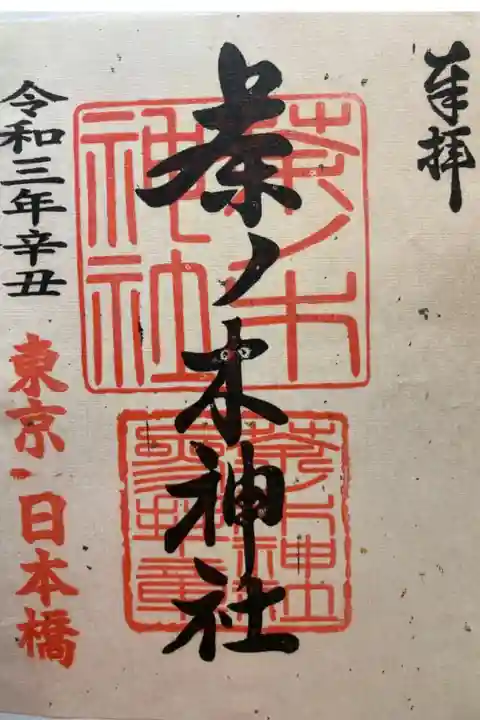 奉拝
茶ノ木神社
茶ノ木
神社
茶ノ木神社
令和三年辛丑
東京・日本橋